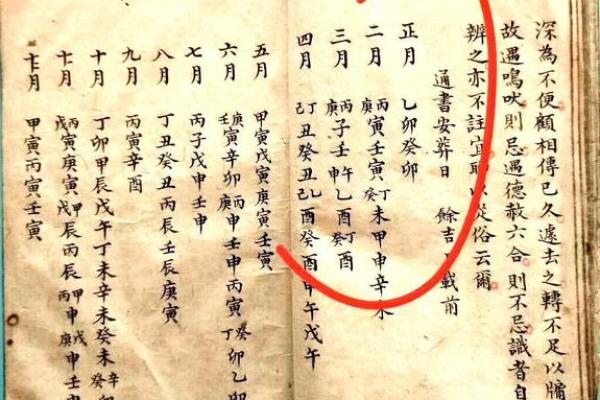 深為不便顧相傳已久遽去之轉不足以牖
故遇鳴吠則忌遇德赦六合則不忌識者自
辨之亦不註宜以從俗云爾
通書安葬日 餘吉載前
正月 乙卯癸卯
二月 丙寅庚寅壬寅癸未丁未甲申辛未
三月 丙子庚子壬申甲午乙酉丁酉癸酉
四月 丁丑己丑癸丑乙酉己酉癸酉甲午戊午
五月 甲寅戊寅庚寅壬寅
六月 庚寅壬寅辛卯丙申庚申壬申丙寅癸卯丁卯乙卯
七月 丙子戊申壬申
八月 丁丑癸丑丙辰壬辰庚寅
九月 丙寅辛酉
十月 丁卯甲辰戊午丁未辛未癸未辛卯癸卯
十一月 丙寅戊寅庚寅甲辰戊辰丙辰甲申丙申戊申庚申壬申
十二月 甲寅丙寅壬寅